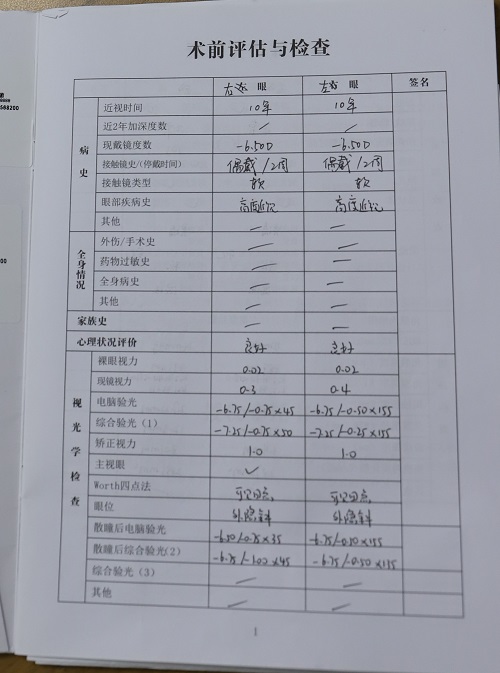 568200
术前评估与检查
眼 眼 签名
病史
近视时间 10年 10年
近2年加深度数 / /
现戴镜度数 -6.50D -6.50D
接触镜史/(停戴时间) 偶戴/2周 偶戴/2周
接触镜类型 软 软
眼部疾病史 高度近视 高度近视
其他 / /
全身情况
外伤/手术史 / /
药物过敏史 / —
全身病史 — —
其他 / /
家族史 — —
心理状况评价 良好 良好
视光学检查
裸眼视力 0.02 0.02
现镜视力 0.3 0.4
电脑验光 -6.75/-0.75×45 -6.75/-0.50×155
综合验光（1） -7.25/-0.75×50 -7.25/-0.25×155
矫正视力 1.0 1.0
主视眼 ✓
Worth四点法
眼位 外隐斜 外隐斜
散瞳后电脑验光 -6.50/-0.75×35 -6.75/-0.50×155
散瞳后综合验光(2) -6.75/-1.00×45 -6.75/-0.50×155
综合验光（3） / /
其他 / /
1